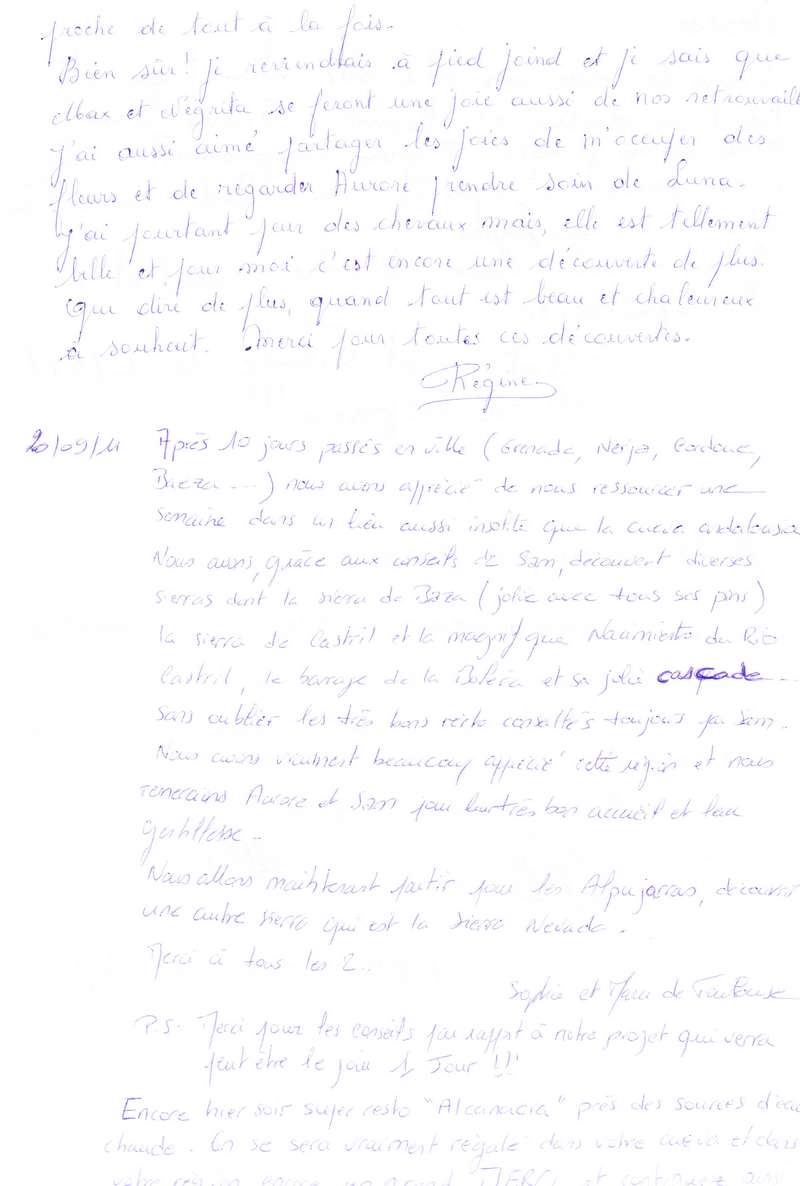 proche de tout à la fois.
Bien sûr! je reviendrais à pied joind et je sais que
Max et Négrita se feront une joie aussi de nos retrouvaill
J'ai aussi aimé partager les joies de m'occuper des
fleurs et de regarder Aurore prendre soin de Luna.
J'ai pourtant peur des chevaux mais, elle est tellement
belle et pour moi c'est encore une découverte de plus.
Que dire de plus, quand tout est beau et chaleureux
à souhait. Merci pour toutes ces découvertes.
Régine
20/09/11 Après 10 jours passés en ville (Grenade, Nerja, Cordoue,
Baeza ....) nous avons apprécié de nous ressourcer une
semaine dans un lieu aussi insolite que la cueva andalousia
Nous avons, grâce aux conseils de Sam, découvert diverses
sierras dont la sierra de Baza (jolie avec tous ses pins)
la sierra de Castril et la magnifique Nacimiento du Rio
Castril, le barrage de la Bolera et sa jolie cascade ....
sans oublier les très bons resto conseillés toujours par Sam.
Nous avons vraiment beaucoup apprécié cette région et nous
remercions Aurore et Sam pour leur très bon accueil et leur
gentillesse.
Nous allons maintenant partir pour les Alpujarras, découvrir
une autre sierra qui est la Sierra Nevada.
Merci à tous les 2..
Sophie et Marc de Toulouse
P.S. Merci pour les conseils par rapport à notre projet qui verra
peut être le jour 1 Jour !!!
Encore hier soir super resto "Alcanacia" près des sources d'eau
chaude. On se sera vraiment régalé dans votre cueva et dans
votre région encore un grand MERCI et continuez ainsi